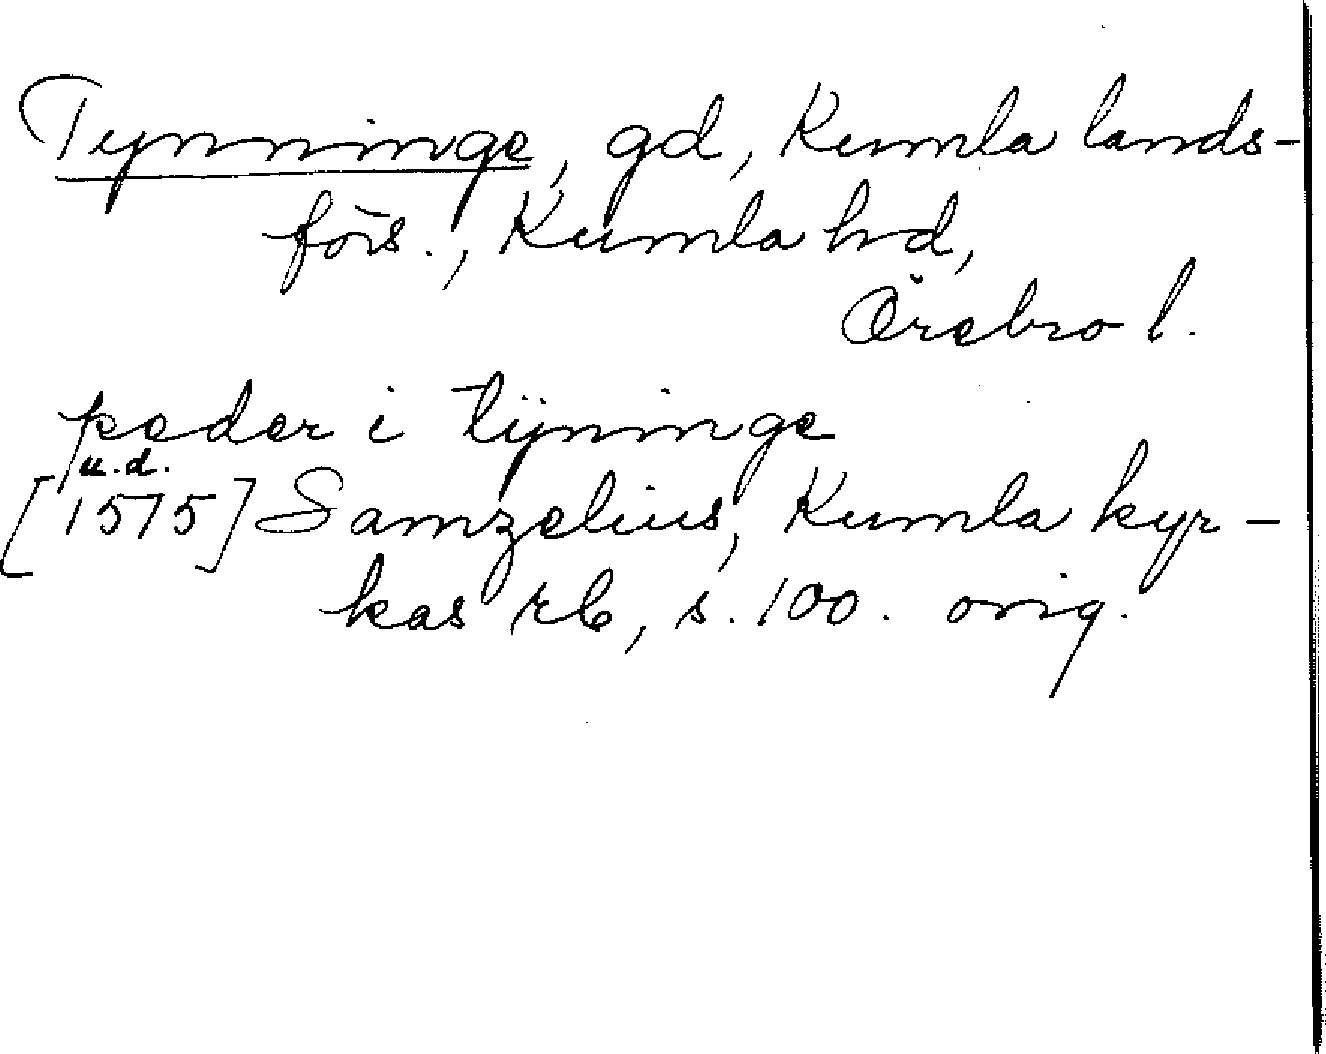 Tynninge, gd, Kumla lands-
förs., Kumla hd,
Örebro l.
peder i tÿninge
u.d.
[1575] Samzelius, Kumla kyr-
kas rb, s. 100. orig.